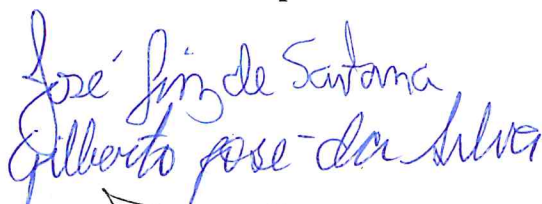 José Luiz de Santana
Gilberto José da Silva